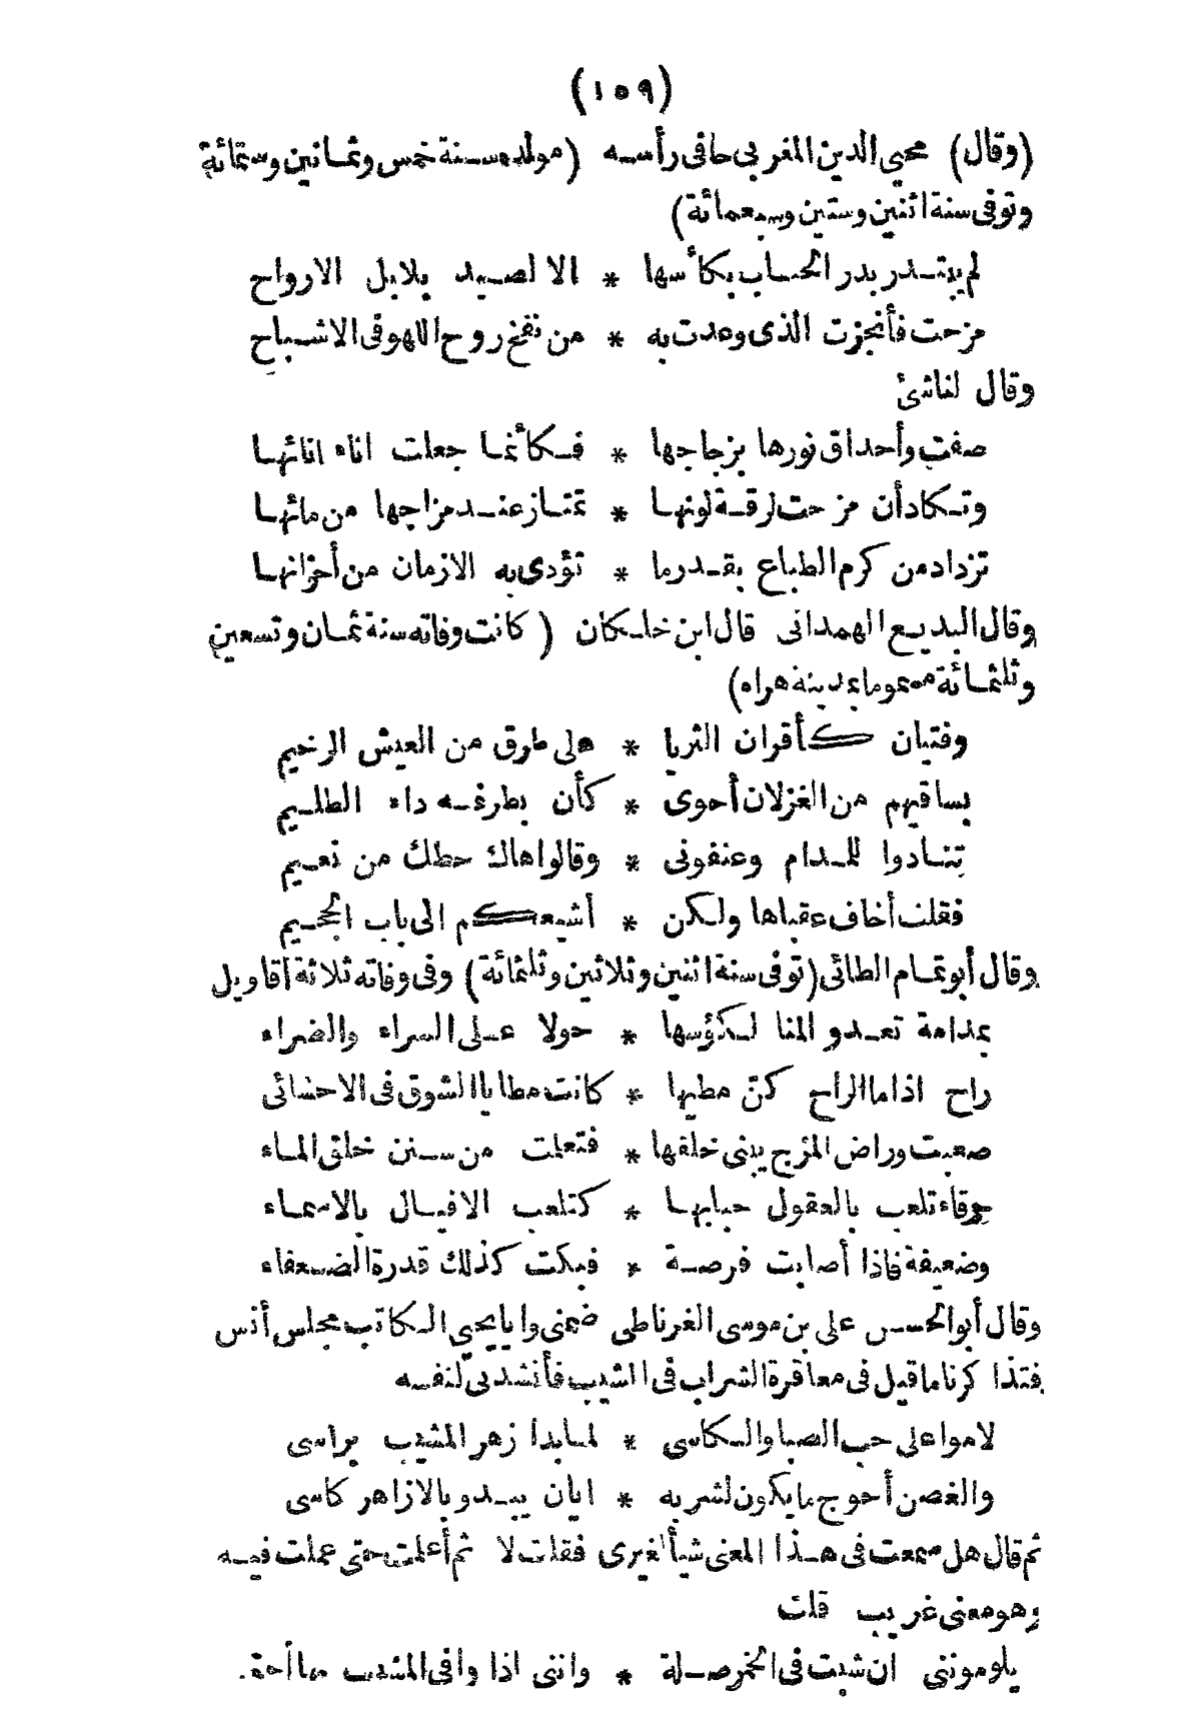 (١٥٩)
(وقال) محيي الدين المغربى حافى رأسه (مولده سنة خمس وثمانين وستمائة
وتوفى سنة اثنين وستين وسبعمائة)
لم يبتدر بدر الحساب بكأسها * الا لصيد بلابل الارواح
مزحت فأنجزت الذى وعدت به * من نفخ روح اللهو فى الاشباح
وقال لناشئ
صفت وأحداق نورها بزجاجها * فكأنما جعلت اناء انائها
وتكاد أن مزحت لرقة لونها * تمتاز عند مزاجها من مائها
تزداد من كرم الطباع بقدر ما * تؤدى به الازمان من أحزانها
وقال البديع الهمدانى قال ابن خلكان (كانت وفاته سنة ثمان وتسعين
وثلثمائة مسموما بمدينة هراه)
وفتيان كأقران الثريا * على طرق من العيش الرخيم
يساقيهم من الغزلان أحوى * كأن بطرفه داء الظليم
تنادوا للمدام وعنفونى * وقالوا هاك حظك من نعيم
فقلت أخاف عقباها ولكن * أشيعكم الى باب الجحيم
وقال أبو تمام الطائى (توفى سنة اثنين وثلاثين وثلثمائة) وفى وفاته ثلاثة أقاويل
بمدامة تعدو المنا لكؤسها * خولا على السراء والضراء
راح اذا ما الراح كنّ مطيها * كانت مطايا الشوق فى الاحشائى
صعبت وراض المزج يبنى خلقها * فتعلمت من سنن خلق الماء
جوفاء تلعب بالعقول حبابها * كتلعب الافيال بالاسماء
وضعيفة فاذا أصابت فرصة * فبكت كذلك قدرة الضعفاء
وقال أبو الحسن على بن موسى الغرناطى ضمنى وايا يحيي الكاتب مجلس أنس
فتذاكرنا ما قيل فى معاقرة الشراب فى الشيب فأنشدنى لنفسه
لاموا على حب الصبا والكاسى * لما بدا زهر المشيب براسى
والغصن أحوج ما يكون لشربه * ايان يبدو بالازاهر كاسى
ثم قال هل سمعت فى هذا المعنى شيأ لغيرى فقلت لا ثم أعملت حتى عملت فيه
وهو معنى غريب قلت
يلومونى ان شبت فى الخمر صلة * وانى اذا وافى المشيب بها أحق